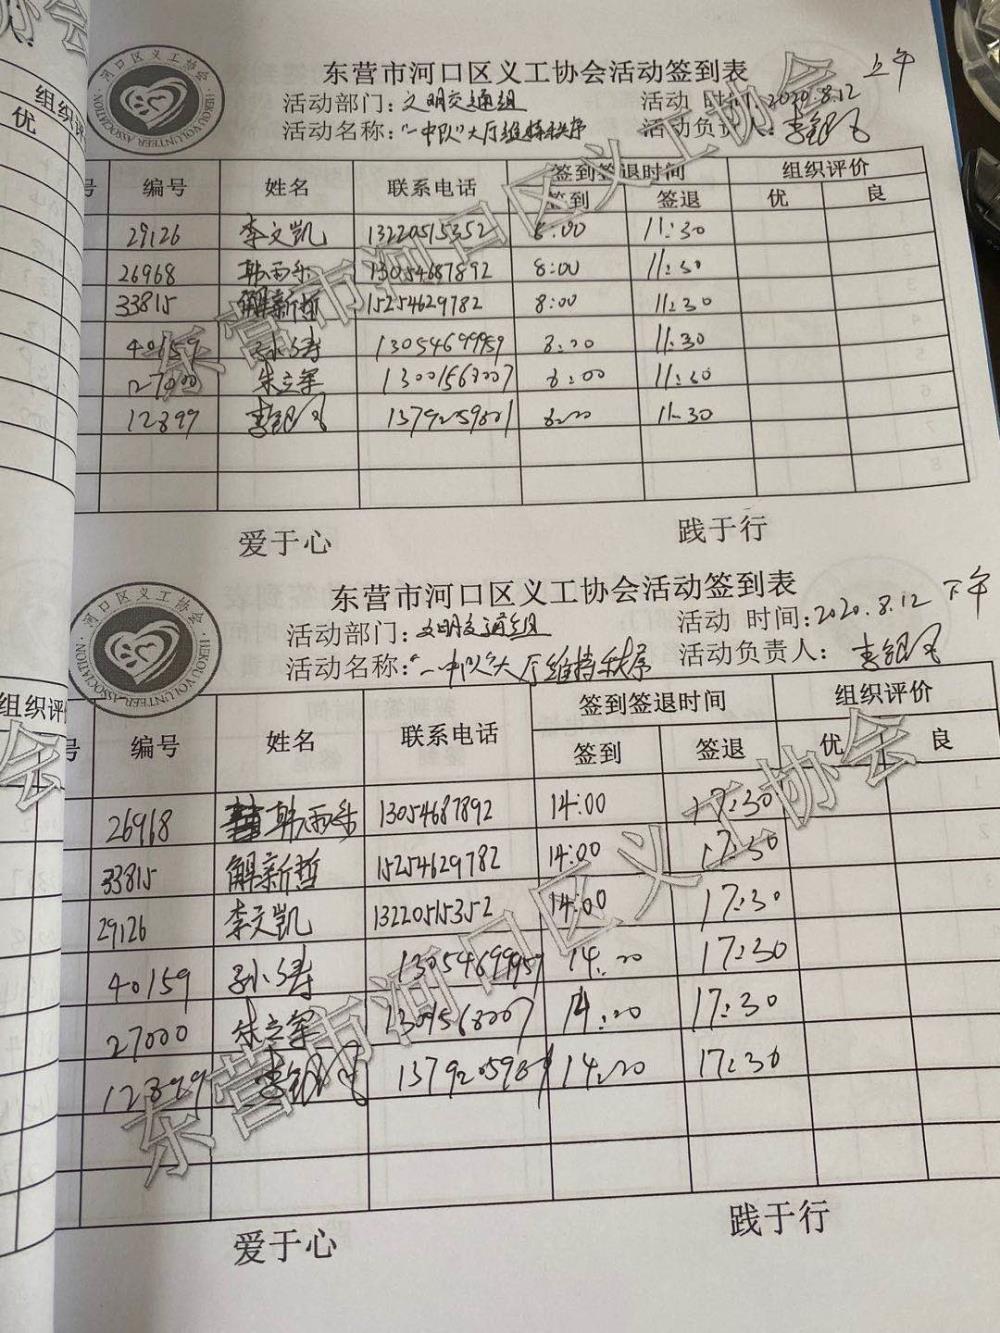 东营市河口区义工协会活动签到表 上午
活动部门:文明交通组 活动 时间:2020.8.12
活动名称:"一中队"大厅维持秩序 活动负责人:李银凤
号 编号 姓名 联系电话 签到签退时间 组织评价
签到 签退 优 良
29126 李文凯 13220515352 8:00 11:30
26968 韩雨乐 13054687892 8:00 11:30
33815 解新哲 15254629782 8:00 11:30
40159 孙小涛 13054699959 8:00 11:30
27000 朱立军 13001568007 8:00 11:30
12899 李银凤 8:00 11:30
爱于心 践于行
东营市河口区义工协会活动签到表 下午
活动部门:文明交通组 活动 时间:2020.8.12
活动名称:"一中队"大厅维持秩序 活动负责人:李银凤
号 编号 姓名 联系电话 签到签退时间 组织评价
签到 签退 优 良
26968 韩雨乐 13054687892 14:00 17:30
33815 解新哲 15254629782 14:00 17:30
29126 李文凯 13220515352 14:00 17:30
40159 孙小涛 13054699959 14:00 17:30
27000 朱立军 14:00 17:30
12899 李银凤 14:00 17:30
爱于心 践于行
河口区义工协会
HEKOU VOLUNTEER ASSOCIATION
河口区义工协会
HEKOU VOLUNTEER ASSOCIATION
组织评
优
组织评
优
东营市河口区义工协会
东营市河口区义工协会